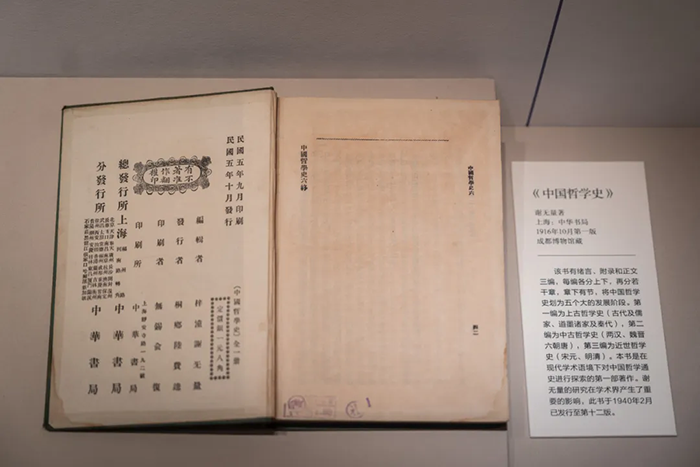 民國五年九月印刷
民國五年十月發行
(中國哲學史)全一冊
定價銀一元八角
有著作權
不准翻印
編輯者
梓潼謝无量
發行者
桐鄉陸費逵
印刷者
無錫俞復
印刷所
上海靜安寺路一九二號
中華書局
總發行所
上海
中華書局
分發行所
中華書局
中國哲學史六終
中國哲學史六
《中国哲学史》
谢无量著
上海：中华书局
1916年10月第一版
成都博物馆藏
该书有绪言、附录和正文
三编，每编各分上下，再分若
干章，章下有节，将中国哲学
史划为五个大的发展阶段。第
一编为上古哲学史（古代及儒
家、道墨诸家及秦代），第二
编为中古哲学史（两汉、魏晋
六朝唐），第三编为近世哲学
史（宋元、明清）。本书是在
现代学术语境下对中国哲学通
史进行探索的第一部著作。谢
无量的研究在学术界产生了重
要的影响，此书于1940年2月
已发行至第十二版。